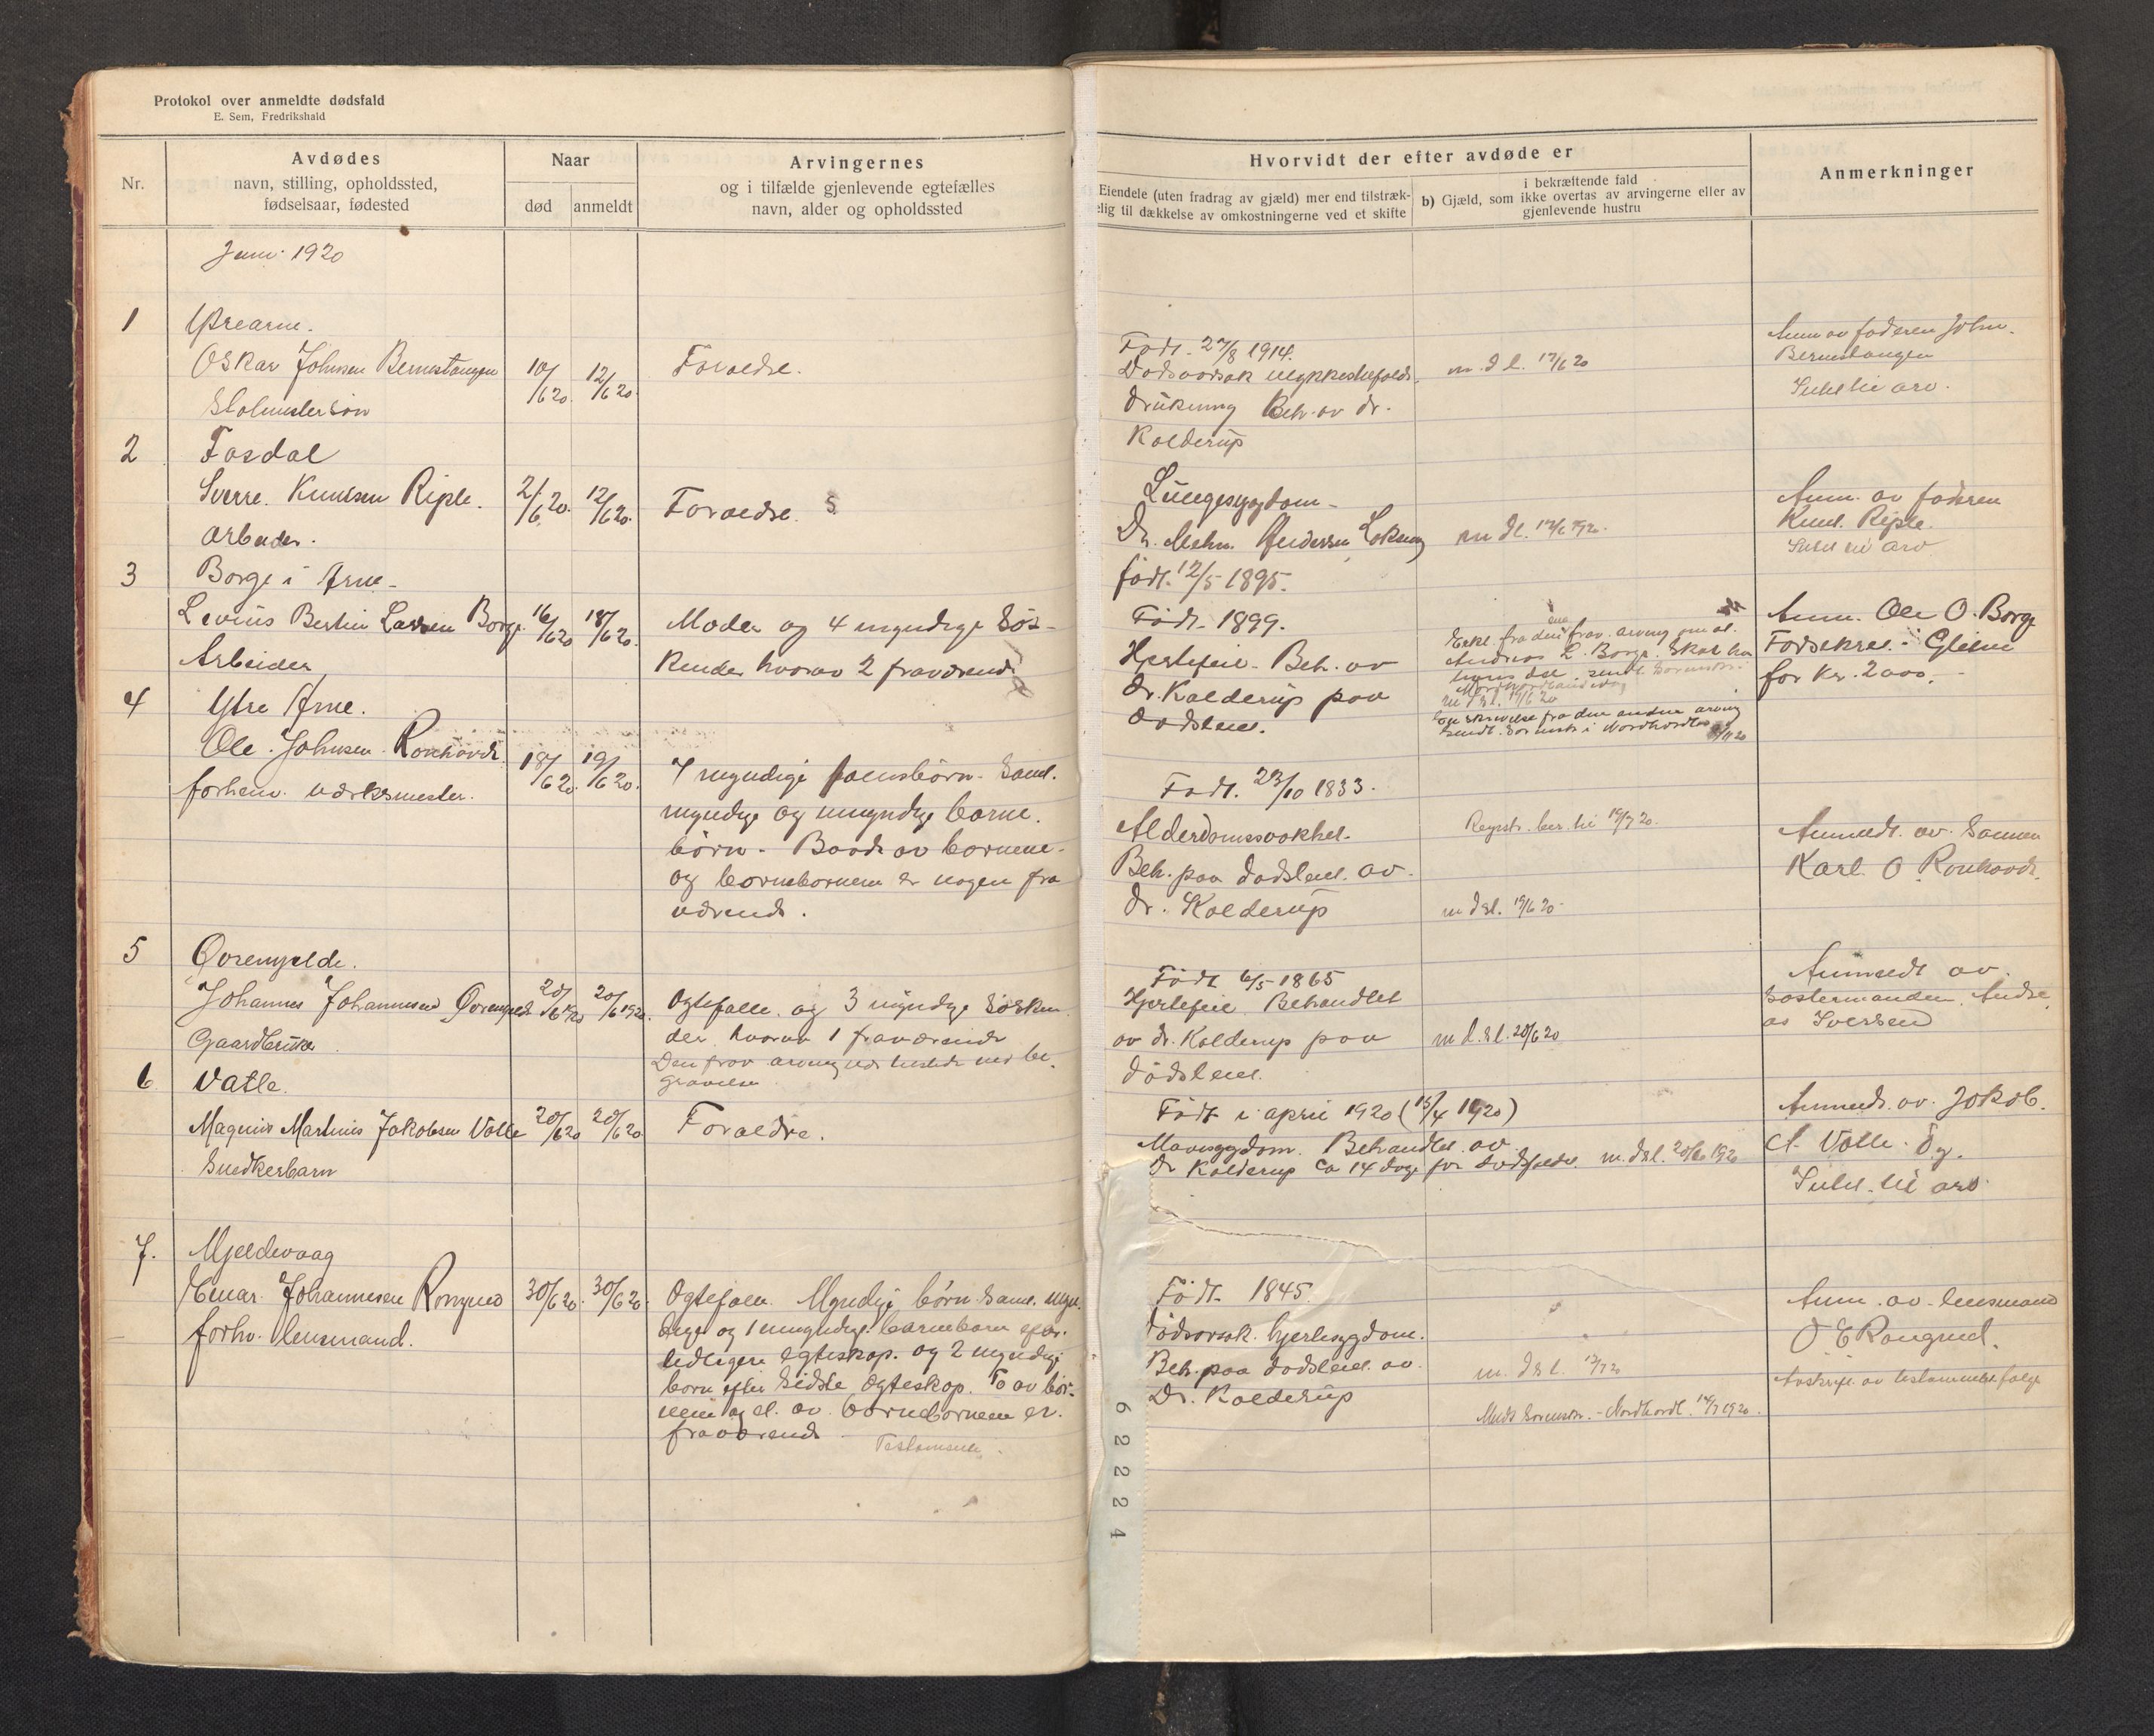 Protokol over anmeldte dødsfald
E. Sem, Fredrikshald
Nr.
Avdødes
navn, stilling, opholdssted,
fødselsaar, fødested
Naar
død
anmeldt
Arvingernes
og i tilfælde gjenlevende egtefælles
navn, alder og opholdssted
Hvorvidt der efter avdøde er
Eiendele (uten fradrag av gjæld) mer end tilstræk-
elig til dækkelse av omkostningerne ved et skifte
i bekræftende fald
b) Gjæld, som ikke overtas av arvingerne eller av
gjenlevende hustru
Anmerkninger
Juni 1920
1
Ytrearne.
Oskar Johnsen Bernestangen
10/6 20.
12/6 20.
Forældre.
Født 27/8 1914.
Dødsaarsak ulykkestilfælde,
drukning Beh. av dr.
Kolderup
m. d l. 12/6 20
Anm av faderen John.
Bernestangen
Intet til arv.
2
Fosdal
Sverre Knutsen Riple.
Arbeider.
2/6 20.
12/6 20.
Forældre. S
Lungesygdom
Dr. Mohn Andersen
født. 12/5 1895.
m dl. 12/6 1920.
Anm. av faderen
Knut Riple.
Intet til arv
3
Borge i Arne
Levius Bertin Larsen Borge
Arbeider
16/6 20
18/6 20.
Moder og 4 myndige søs-
kende hvorav 2 fraværende
Født 1899.
Hjertefeil. Beh. av
dr. Kolderup paa
dødsleiet.
Erkl. fra den ene frav. arving om at
Andreas L. Borge skal ha
hans del sendt Sorenskr. i
Nordhordland
m d sl. 19/6 20
skrivelse fra den anden arving
sendt Sorenskr i Nordhordland
Anm. Ole O. Borge
for kr. 2000.-
4
Ytre Arne.
Ole Johnsen Ronhovde
forhenv. værksmester.
18/6 20.
19/6 20.
7 myndige børn. Saml.
myndige og umyndige barne.
børn. Baade av børnene
og barnebørnene er nogen fra
værende.
Født. 23/10 1833.
Alderdomssvakhet.
Beh. paa dødsleiet av
dr. Kolderup
Registr. ber. til 19/7 20.
m d sl. 19/6 20
Anmeldt av sønnen
Karl O Ronhovde.
5
Øvremjelde.
Johannes Johannessen Øvremjelde
Gaardbruker
20/6 1920
20/6 1920.
Egtefælle og 3 myndige søsken
der hvorav 1 fraværende
Den frav arving var tilstede ved be.
gravelsen
Født 6/5 1865
Hjertefeil Behandlet
av dr. Kolderup paa
dødsleiet.
m d. sl. 20/6 20
Anmeldt av
søstermanden Andre
as Iversen
6
Vatle.
Magnus Martinus Jakobsen Vatle
Snedkerbarn
20/6 20
20/6 20
Forældre.
Født i april 1920 (15/4 1920)
Mavesygdom. Behandlet av
Dr Kolderup ca 14 dage før dødsfaldet. m. d sl. 20/6 1920
Anmeldt av Jakob.
A. Vatle.
Intet til arv.
7.
Mjeldevaag
Einar Johannesen Romgred
forhv. lensmand.
30/6 20.
30/6 20.
Egtefælle. Myndige børn saml. myn.
dige og 1 umyndig barnebarn efter
tidligere egteskap. og 2 myndige
born efter sidste egteskap. To av bør-
nene og et av barnebørnene er
fraværende
Testament.
Født 1845.
Dødsorsak. hjertesygdom.
Beh. paa dødsleiet av
Dr. Kolderup
m. d s l. 12/7 20
Meldt Sorenskr. Nordhordl. 14/7 1920.
Anm. av lensmand
O E Romgred.
Avskrift av testamentet følge
62224